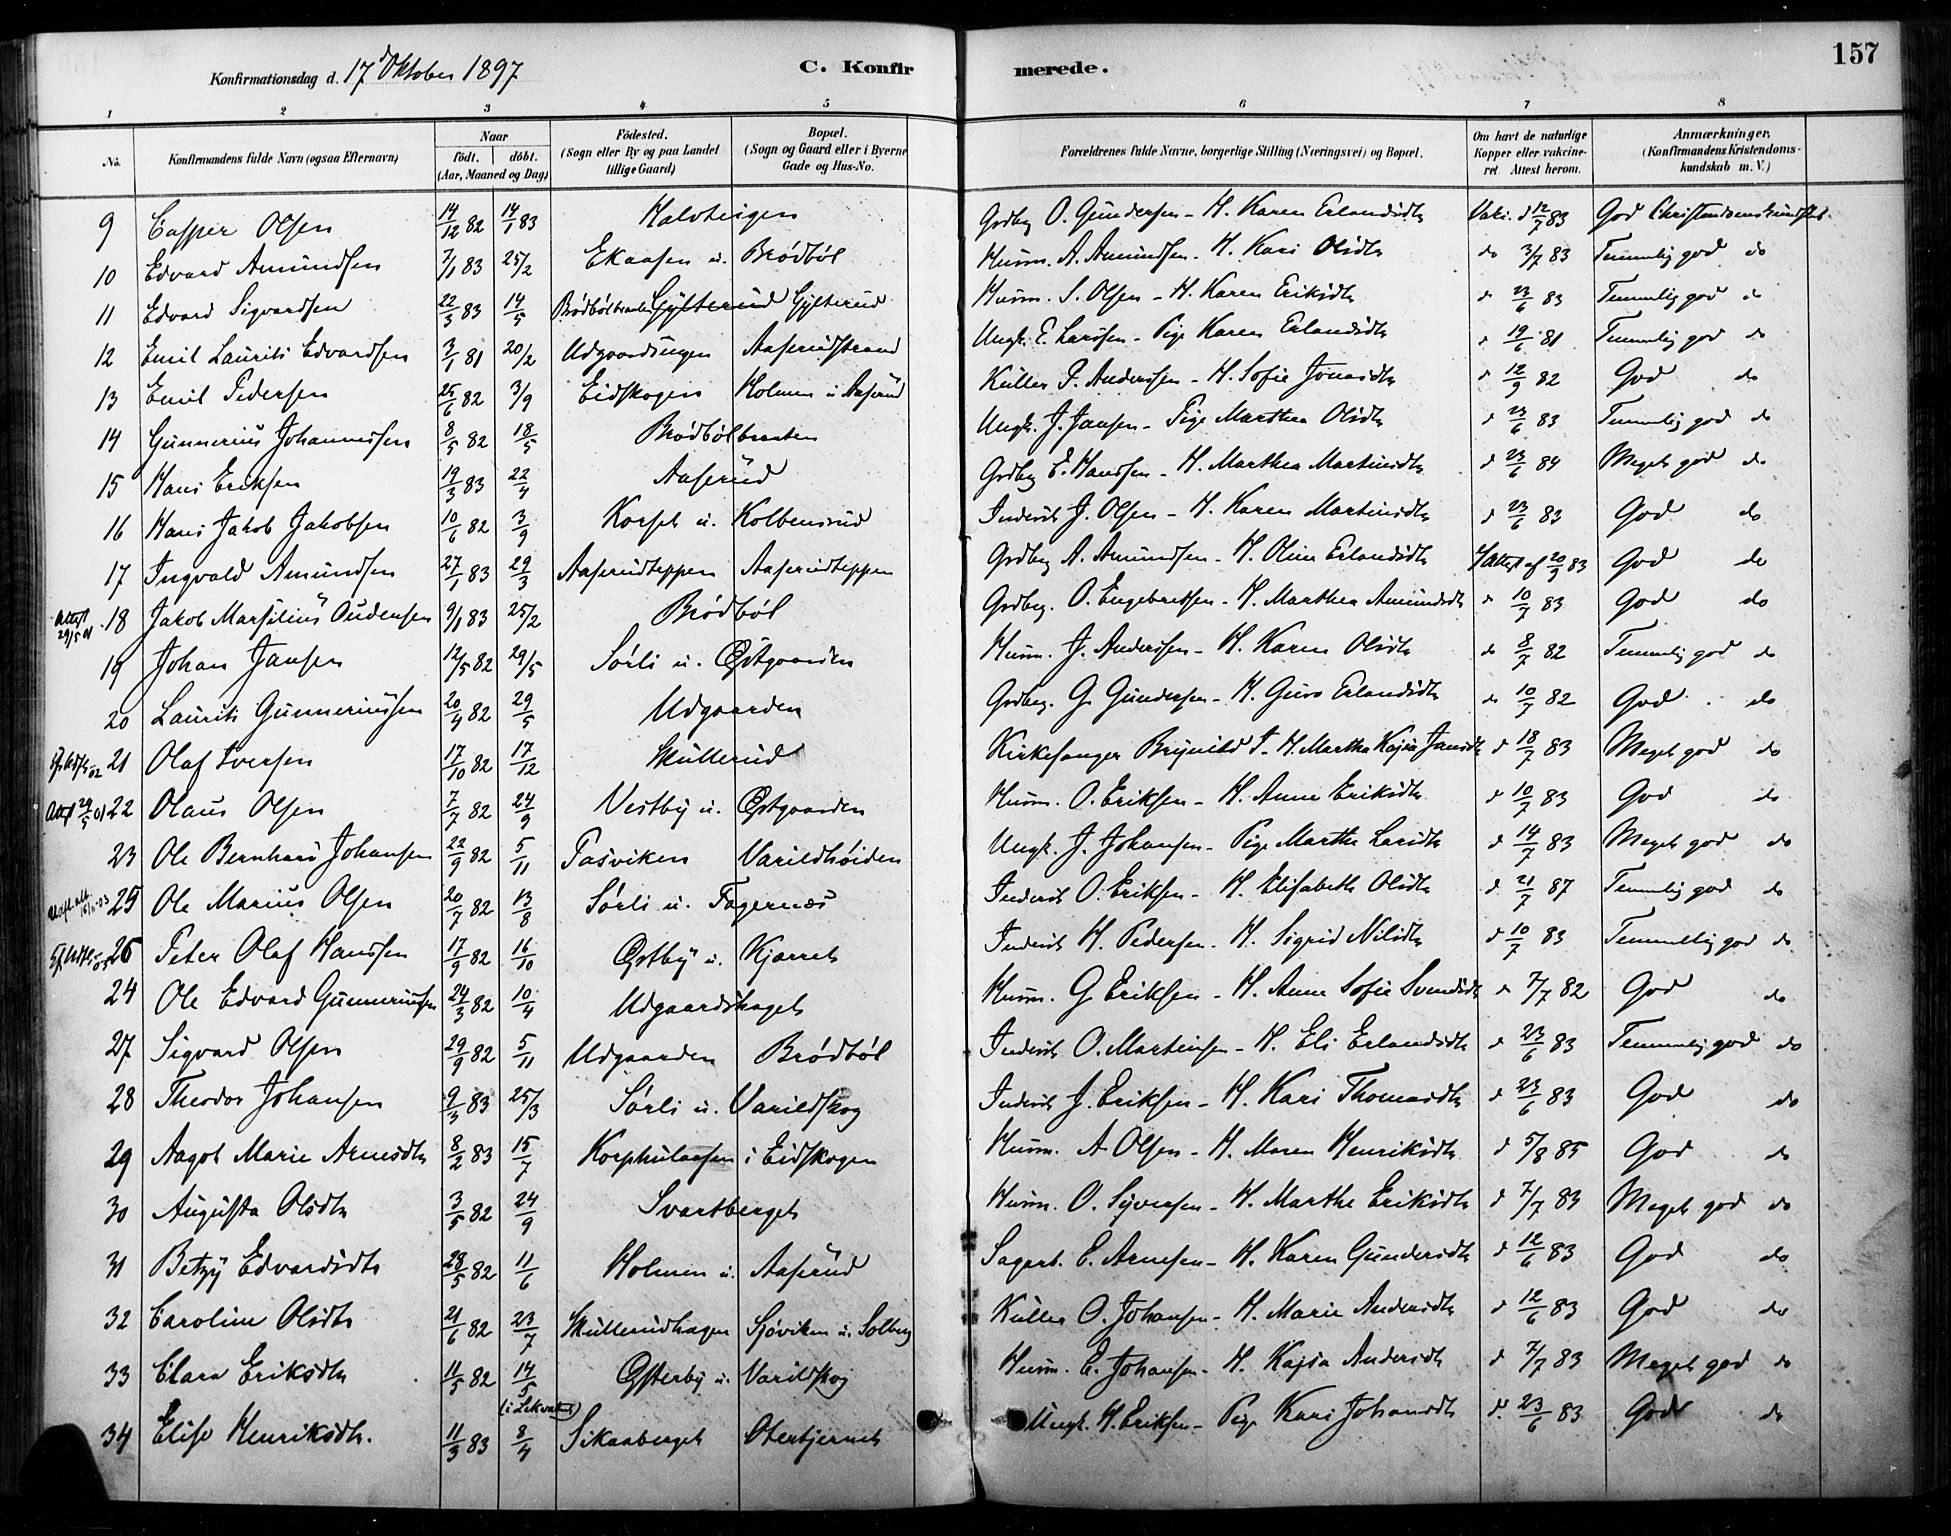 157
Konfirmationsdag d. 17d Oktober 1897
C. Konfirmerede.
1 2 3 4 5 6 7 8
No. Konfirmandens fulde Navn (ogsaa Efternavn) Naar födt. döbt. (Aar, Maaned og Dag) Födested. (Sogn eller By og paa Landet tillige Gaard) Bopæl. (Sogn og Gaard eller i Byerne Gade og Hus-No. Forældrenes fulde Navne, borgerlige Stilling (Næringsvei) og Bopæl. Om havt de naturlige Kopper eller vakcineret. Attest herom. Anmærkninger, (Konfirmandens Kristendomskundskab m. V.)
9 Casper Olsen 14/12 82 14/1 83 Grdbg O. Gundersen - H. Karen Erlandsdtr Vaki. d 12/7 83 God
10 Edvard Amundsen 7/1 83 25/2 Ekaasen u. Brødbøl Husm. A. Amundsen - H. Kari Olsdtr do 3/7 83 Temmelig god do
11 Edvard Sigvardsen 22/3 83 14/5 Gylterud Gylterud Husm. S. Olsen - H. Karen Eriksdtr d 23/6 83 Temmelig god do
12 Emil Laurits Edvardsen 3/1 81 20/2 Udgaardsengen Aaserudstrand Ungk. E. Larssen - Pige Karen Erlandsdtr d 19/6 81 Temmelig god do
13 Emil Pedersen 25/6 82 3/9 Eidskogen Holmen u. Aaserud Kuller P. Anderssen - H. Sofie Jonasdtr d 12/9 82 God do
14 Gunnerius Johannessen 8/5 82 18/5 Brødbølbraaten Ungk. J. Jansen - Pige Marthea Olsdtr d 23/6 83 Temmelig god do
15 Hans Eriksen 19/3 83 22/4 Aaserud Grdbg E. Hanssen - H. Marthea Martinsdtr d 23/6 84 Meget god do
16 Hans Jakob Jakobsen 10/6 82 3/9 Korset u. Kolbensrud Inderst J. Olsen - H. Karen Martinsdtr d 23/6 83 God do
17 Ingvald Amundsen 27/1 83 29/3 Aaserudteppen Aaserudteppen Grdbg A. Amundsen - H. Oline Erlandsdtr Attest af 20/9 83 God do
Attest 29/5 01 18 Jakob Marsilius Oudensen 9/1 83 25/2 Brødbøl Grdbg. O. Engebretsen - H. Marthea Amundsdtr d 10/7 83 God do
19 Johan Jansen 12/5 82 29/5 Sørli u. Østgaarden Husm. J. Anderssen - H. Karen Olsdtr do 8/7 82 Temmelig god do
20 Laurits Gunneriussen 20/4 82 29/5 Udgaarden Grdbg. G. Gundersen - H. Guro Erlandsdtr do 10/7 82 God do
21 Olaf Iversen 17/10 82 17/12 Skullerud Kirkesanger Brynild I. - H. Martha Kajsa Jansdtr d 18/7 83 Meget god do
Att 29/5 01 22 Olaus Olsen 7/7 82 24/9 Vestby u. Østgaarden Husm. O. Eriksen - H. Anne Eriksdtr d 10/7 83 God do
23 Ole Bernhard Johansen 22/9 82 5/11 Tasviken Varildhøiden Ungk. J. Johansen - Pige Marthe Larsdtr d 14/7 83 Meget god do
25 Ole Marius Olsen 20/7 82 13/8 Sørli u. Fagernæs Inderst O. Eriksen - H. Elisabeth Olsdtr d 21/7 87 Temmelig god do
26 Peter Olaf Hanssen 17/9 82 16/10 Østby u. Kjærret Inderst H. Pedersen - H. Sigrid Nilsdtr d 10/7 83 Temmellig god do
24 Ole Edvard Gunneriussen 24/3 82 10/4 Udgaardshaget Husm. G Eriksen - H. Anne Sofie Svendsdtr d 7/7 82 God do
27 Sigvard Olsen 29/9 82 5/11 Udgaarden Brødbøl Inderst O. Martinsen - H. Eli Erlandsdtr d 23/6 83 Temmelig god do
28 Theodor Johansen 9/3 83 25/3 Sørli u. Varildskog Inderst J. Eriksen - H. Kari Thomasdtr d 23/6 83 God do
29 Aagot Marie Arnesdtr 8/2 83 15/7 Korphulaasen i Eidskogen Husm. A Olsen - H. Maren Henriksdtr d 5/8 85 God do
30 Augusta Olsdtr 3/5 82 24/9 Svartberget Husm. O. Syversen - H. Marthe Eriksdtr d 7/7 83 Meget god do
31 Betzy Edvardsdtr 28/5 82 11/6 Holmen u. Aaserud Sagarb. E. Arnesen - H. Karen Gundersdtr d 12/6 83 God do
32 Caroline Olsdtr 21/6 82 23/7 Skullerudhagen Sjøviken u. Solberg Kuller O. Johansen - H. Marie Andersdtr d 12/6 83 God do
33 Clara Eriksdtr 11/5 82 14/5 Østerby u. Varildskog Husm. E. Johansen - H. Kajsa Andersdtr d 7/7 83 Meget god do
34 Elise Henriksdtr. 11/3 83 8/4 Sikaaberget Otertjernet Ungk. H. Eriksen - Pige Kari Johansdtr d. 23/6 83 God do